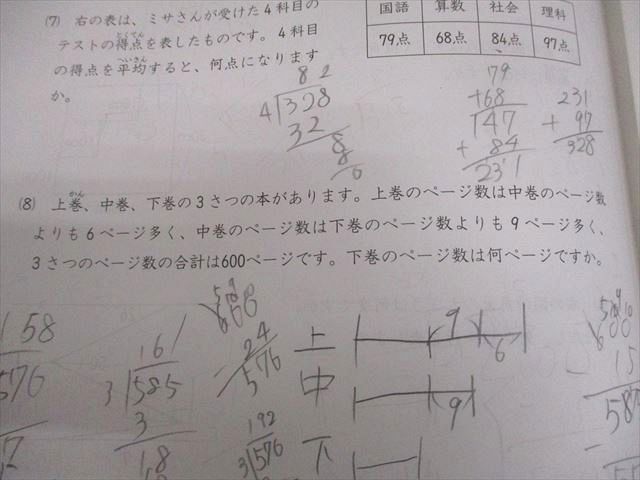 ⑺ 右の表は、ミサさんが受けた4科目の
テストの得点を表したものです。4科目
の得点を平均すると、何点になります
か。
国語 算数 社会 理科
79点 68点 84点 97点
82
4 328
32
8
8
0
79
+68
147
+ 84
231
231
+ 97
328
⑻ 上巻、中巻、下巻の3さつの本があります。上巻のページ数は中巻のページ数
よりも6ページ多く、中巻のページ数は下巻のページ数よりも9ページ多く、
3さつのページ数の合計は600ページです。下巻のページ数は何ページですか。
158
576
161
3 585
3
18
600
- 24
576
192
3 576
上 9 6
中 9
下
600
- 15
585